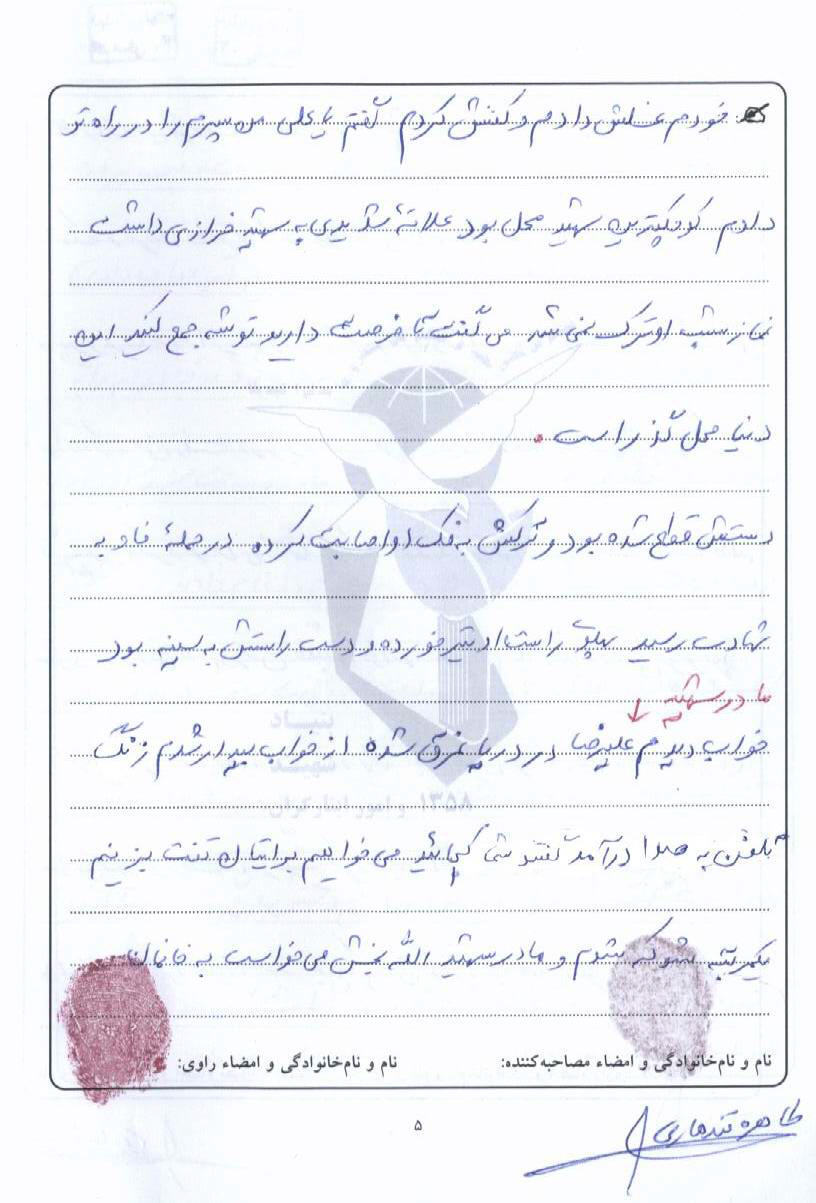 خودم غسلش دادم و کفنش کردم گفتم یا علی من پسرم را در راه تو
دادم کوچکترین شهید محل بود علاقهٔ شدیدی به شهید خرازی داشت
نماز شب او ترک نمی شد می گفت تا فرصت دارید توشه جمع کنید این
دنیا محل گذر است.
دستش قطع شده بود و ترکش به فک او اصابت کرده در حملهٔ فاو به
شهادت رسید پهلوی راست او تیر خورده و دست راستش به سینه بود
مادر شهید
خواب دیدم علیرضا در دریا غرق شده از خواب بیدار شدم زنگ
تلفن به صدا درآمد گفتند شما کجائید می خواهیم برایتان نفت بریزیم
یکمرتبه شوکه شدم و مادر شهید الله بخش می خواست به خانمان
بنیاد
شهید
و امور ایثارگران
۱۳۵۸
نام و نام‌خانوادگی و امضاء مصاحبه‌کننده: نام و نام‌خانوادگی و امضاء راوی:
۵
طاهره قندهاری